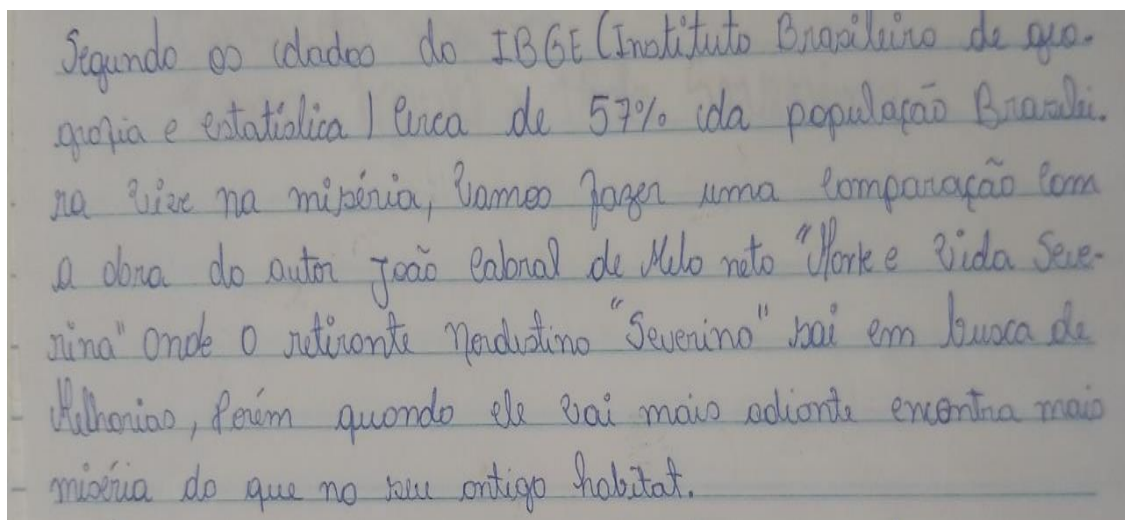 Segundo os dados do IBGE (Instituto Brasileiro de geo-
grafia e estatística) Cerca de 57% da população Brasilei.
ra vive na miséria, Vamos fazer uma comparação com
a obra do autor João Cabral de Melo neto "Morte e vida Seve-
rina" onde o retirante nordistino "Severino" sai em busca de
Melhorias, Porém quando ele vai mais adiante encontra mais
miséria do que no seu antigo habitat.